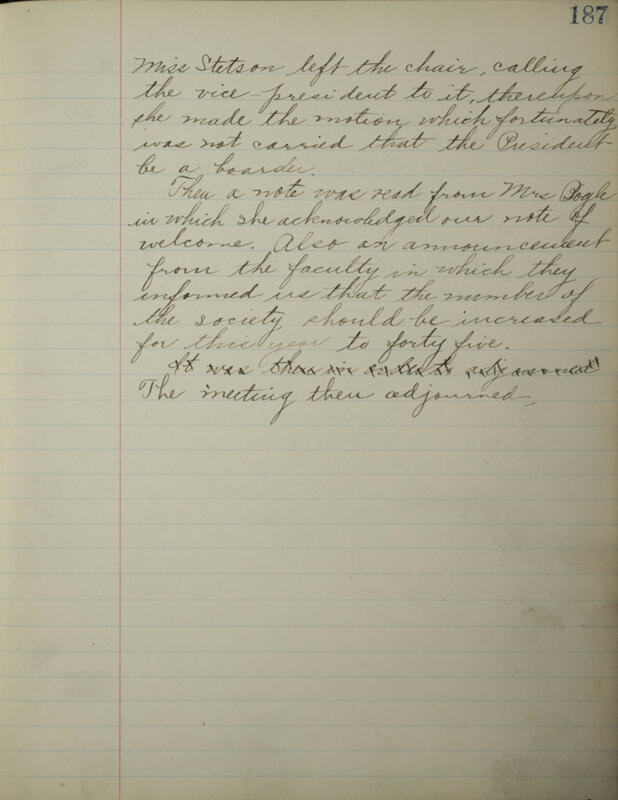 187
Miss Stetson left the chair, calling
the vice president to it, thereupon
she made the motion which fortunately
was not carried that the President
be a boarder.
Then a note was read from Mrs
in which she acknowledged our note of
welcome. Also an announcement
from the faculty in which they
informed us that the number of
the society should be increased
for this year to forty five.
It was then in order to adjournment
The meeting then adjourned.